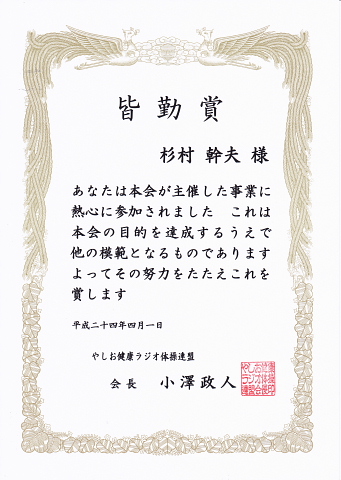 皆勤賞
杉村 幹夫 様
あなたは本会が主催した事業に
熱心に参加されました これは
本会の目的を達成するうえで
他の模範となるものであります
よってその努力をたたえこれを
賞します
平成二十四年四月一日
やしお健康ラジオ体操連盟
会長 小澤政人